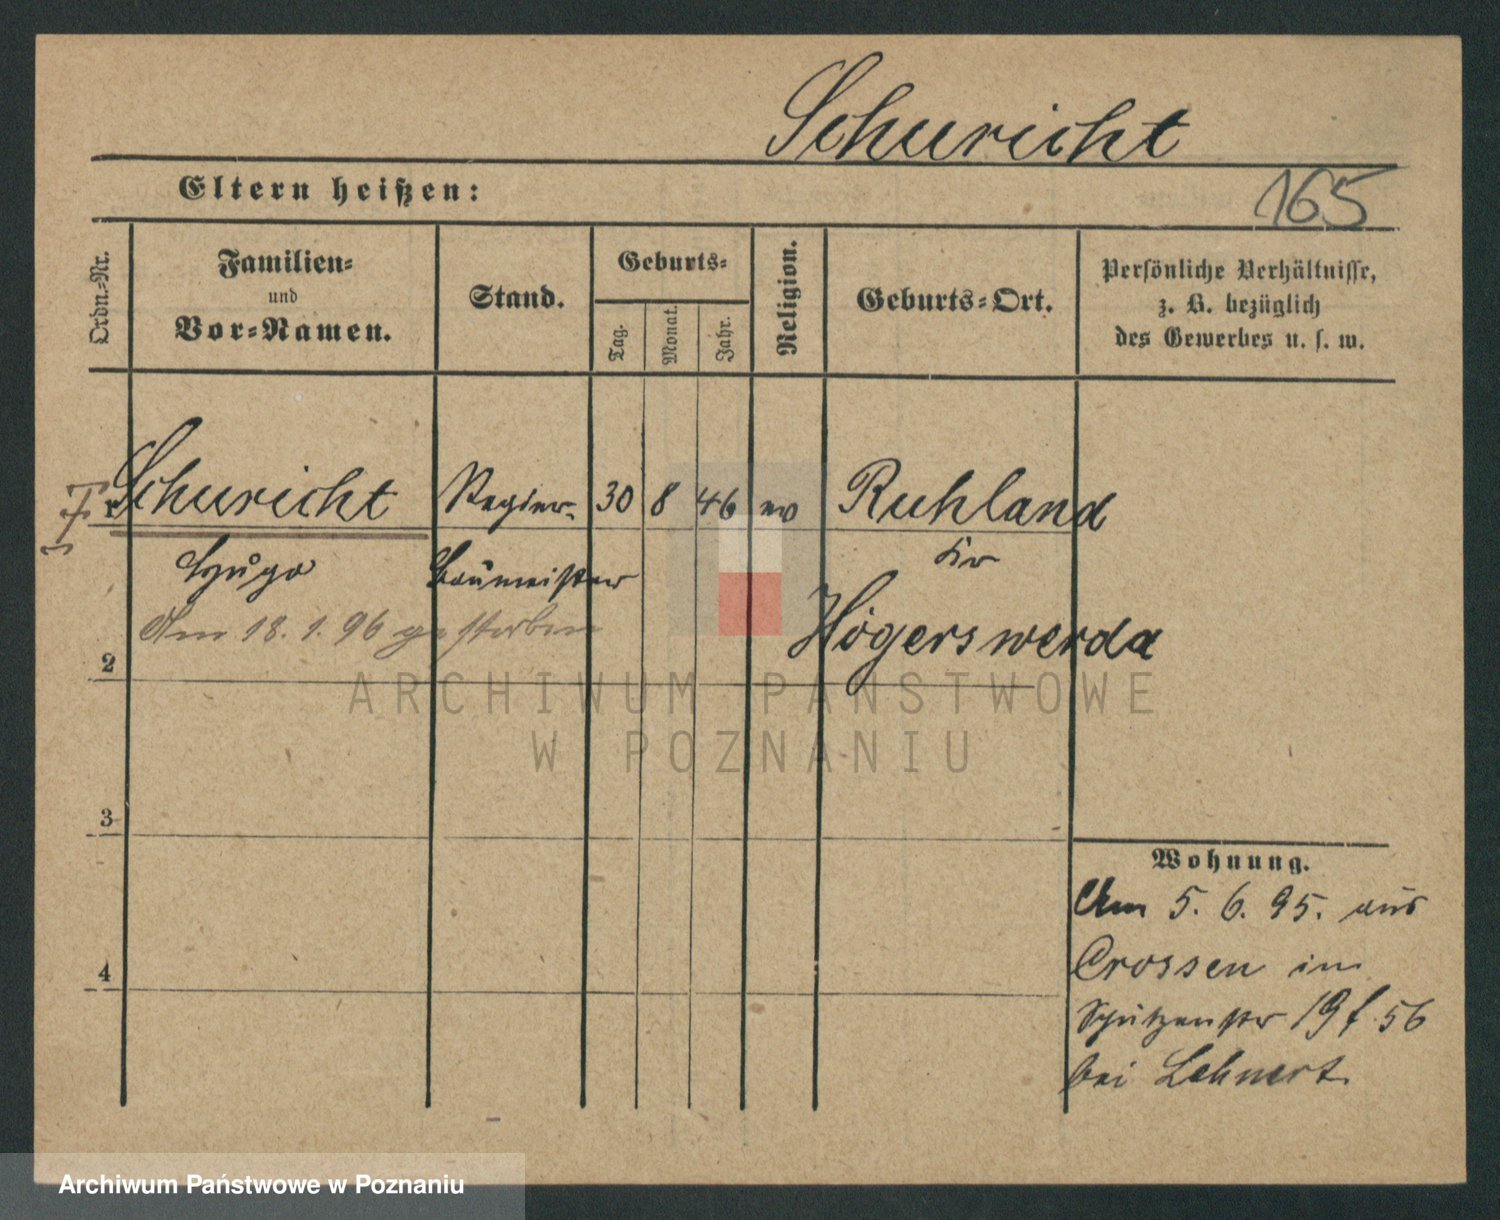 Schuricht
Eltern heißen:
165
Ordn.-Nr.
Familien-
und
Vor-Namen.
Stand.
Geburts-
Tag.
Monat.
Jahr.
Religion.
Geburts-Ort.
Persönliche Verhältnisse,
z. B. bezüglich
des Gewerbes u. s. w.
Schuricht Regier- 30 8 46 ev Ruhland
Hugo Baumeister Kr
Am 18. 1. 96 gestorben Hogerswerda
2
3
4
Wohnung.
Am 5. 6. 95. aus
Crossen in
Schützenstr 19 f. 56
bei Lehnert.
ARCHIWUM PAŃSTWOWE
W POZNANIU
Archiwum Państwowe w Poznaniu